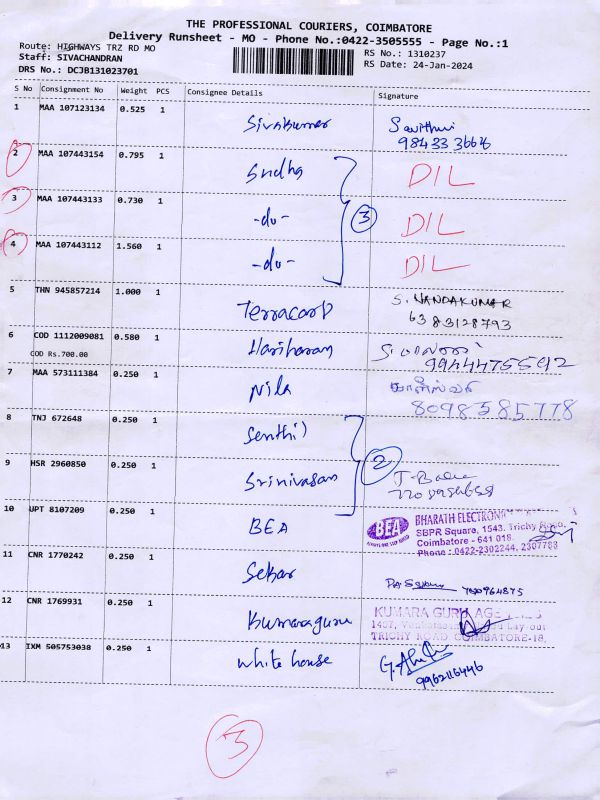 THE PROFESSIONAL COURIERS, COIMBATORE
Delivery Runsheet - MO - Phone No.:0422-3505555 - Page No.:1
Route: HIGHWAYS TRZ RD MO
RS No.: 1310237
Staff: SIVACHANDRAN
RS Date: 24-Jan-2024
DRS No.: DCJB131023701
S No Consignment No Weight PCS Consignee Details Signature
1 MAA 107123134 0.525 1 Sivakumar Savithri
98433 36676
2 MAA 107443154 0.795 1 Sudha DIL
3 MAA 107443133 0.730 1 -do- DIL
3
4 MAA 107443112 1.560 1 -do- DIL
5 THN 945857214 1.000 1 Terracorp S. NANDAKUMAR
6383128793
6 COD 1112009081 0.580 1 Hariharan
COD Rs.700.00 9944475592
7 MAA 573111384 0.250 1 Nila காளீஸ்வரி
8098585778
8 TNJ 672648 0.250 1 Senthil
2
9 HSR 2960850 0.250 1 Srinivasan
10 UPT 8107209 0.250 1 BEA
BEA BHARATH ELECTRONI
SBPR Square, 1543, Trichy Road,
Coimbatore - 641 018.
Phone : 0422-2302244, 2307783
11 CNR 1770242 0.250 1 Sekar
12 CNR 1769931 0.250 1 Kumaraguru
KUMARA GURU AGENCIES
TRICHY ROAD, COIMBATORE-18.
13 IXM 505753038 0.250 1 White house
9962116446
3